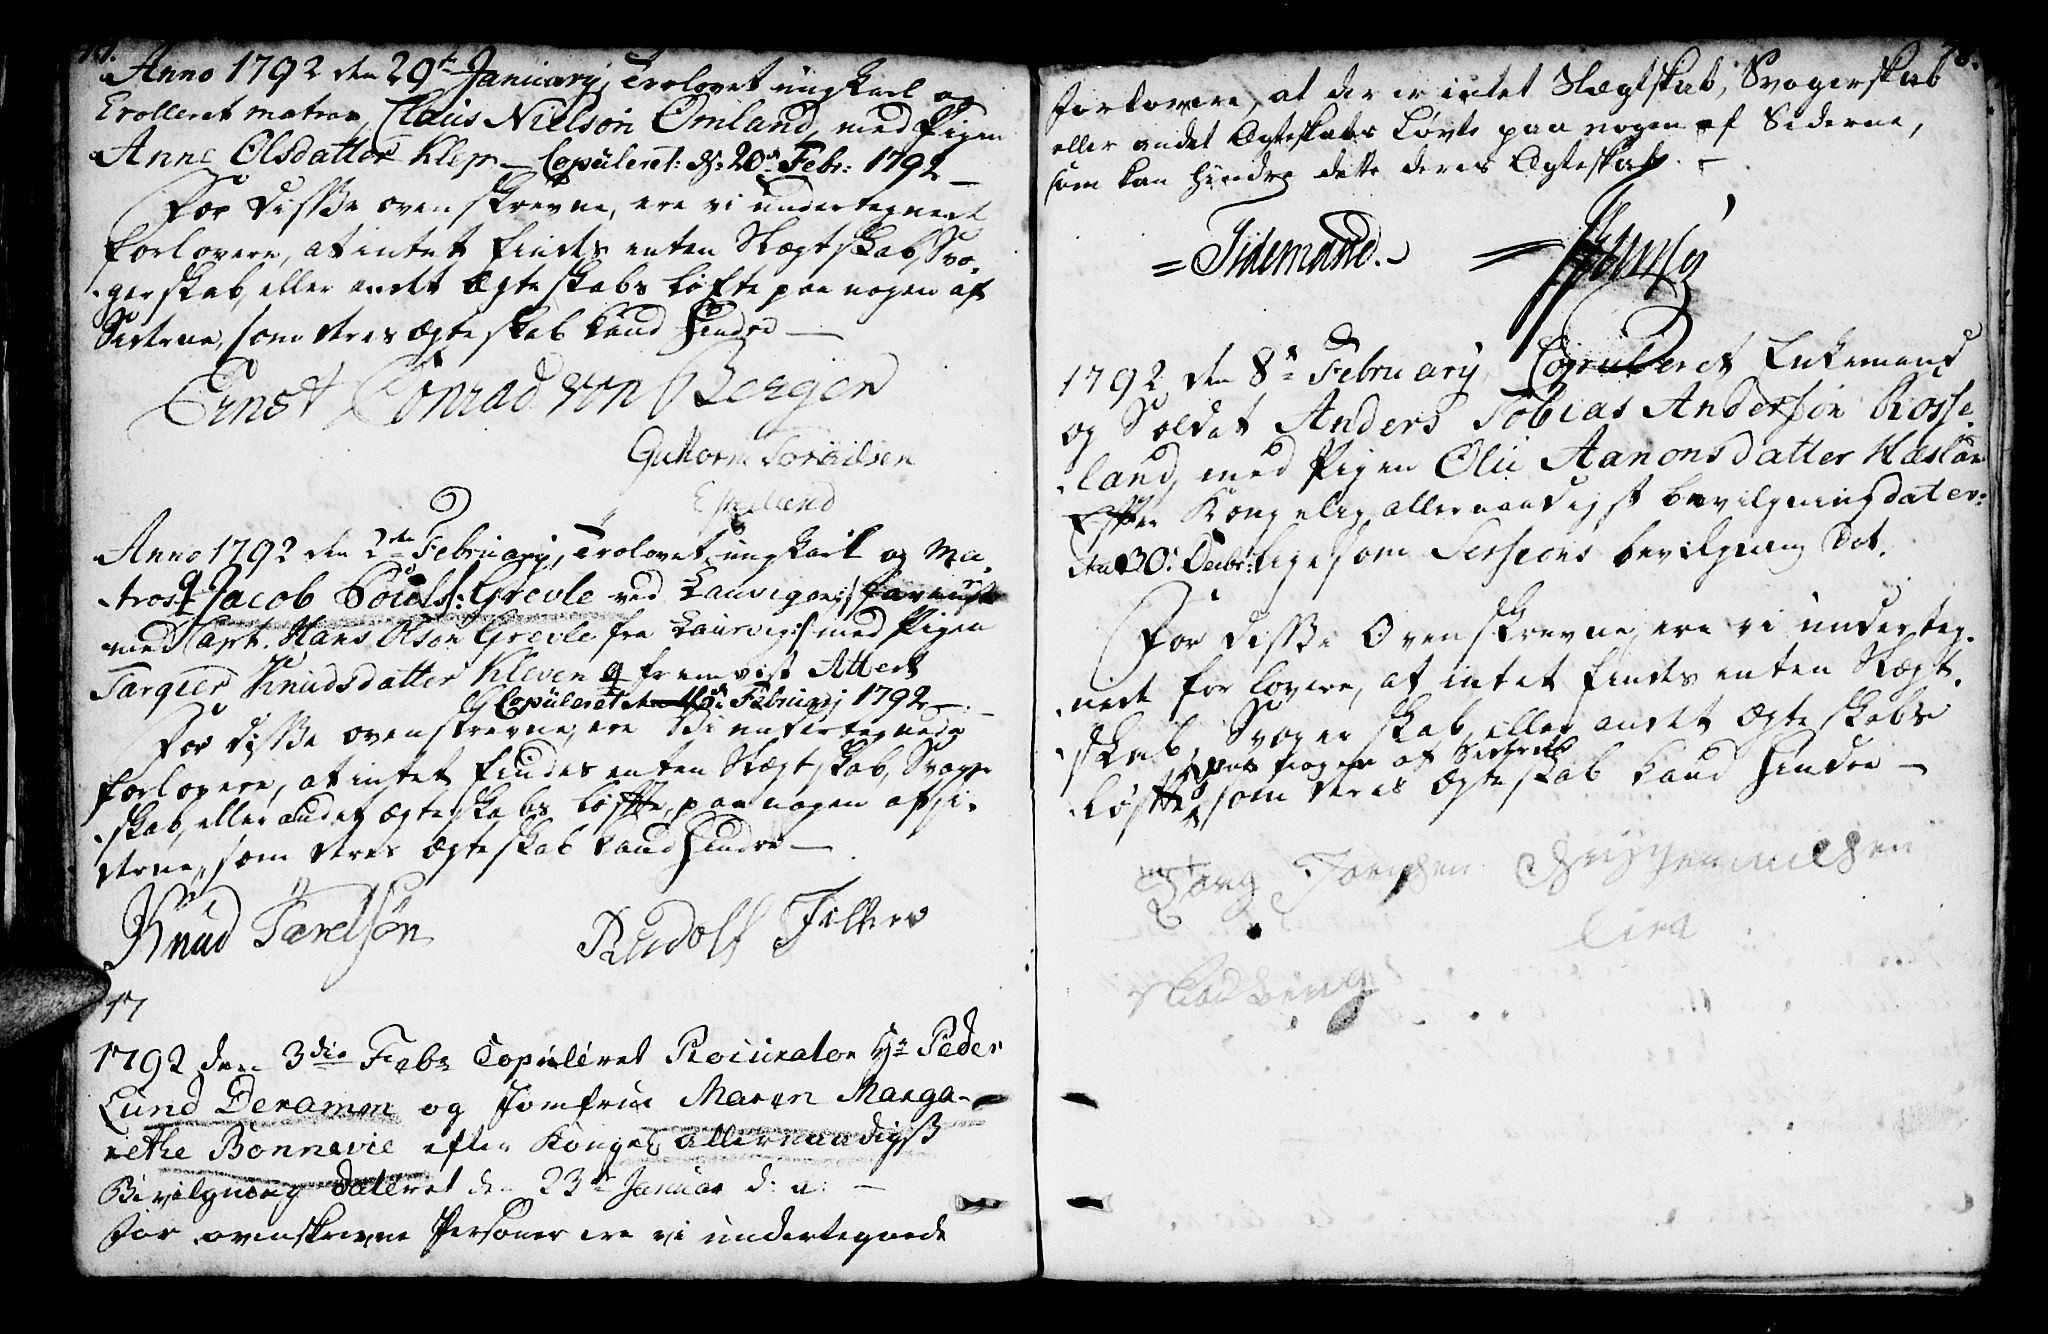 77.
Anno 1792 den 29de Januarij, Trolovet ungkarl og
Enrolleret matros, Claus Nielsøn Omland, med Pigen
Anne Olsdatter Klep — Copuleret: d: 20de Febr: 1792 —
For disse ovenskrevne, ere vi undertegnede
forlovere, at intet findes enten Slægtskab, Svo-
gerskab, eller andet Ægteskabs Løfte paa nogen af
Siderne, som deres Ægteskab kand hindre —
Ernst Conrad von Bergen
Guttorm
Anno 1792 den 2den Februarij, Trolovet ungkarl og Ma-
tros Jacob Grevle ved Laurvigen
med Capt. Hans Olsøn Grevle fra Laurvig :/ med Pigen
Targier Knudsdatter Kleven fremvist Attest
Copuleret Februarij 1792 —
For disse ovenskrevne, ere vi undertegnede
forlovere, at intet findes enten Slægtskab, Svoger-
skab, eller andet Ægteskabs Løfte, paa nogen af Si-
derne, som deres Ægteskab kand hindre —
Knud Tarelsøn Rudolf
17
1792 den 3die Febr Copuleret Procurator Hr Peder
Lund Deramen og Jomfrue Maren Marga-
rethe Bonnevie efter Konges allernaadigst
Bevilgning dateret den 23de Januar d: a: —
for ovenskrevne Personer ere vi undertegnede
78.
forlovere, at der er intet Slægtskab, Svogerskab
eller andet Ægteskabs Løvte paa nogen af Siderne,
som kan hindre dette deres Ægteskab. —
= Tidemand. =
1792 den 8de Februarij Copuleret Enkemand
og Soldat Anders Tobias Andersøn Rosse-
land, med Pigen Oli Aanonsdatter Hæslan
Efter Kongelig allernaadigst bevilgning dater:
den 30. Decbr: ligesom Sessions bevilgning dat.
For disse Ovenskrevne, ere vi underteg-
nede forlovere, at intet findes enten Slægt-
skab, Svogerskab, eller andet Ægteskabs
paa nogen af Siderne
Løfte, som deres Ægteskab kand hindre —